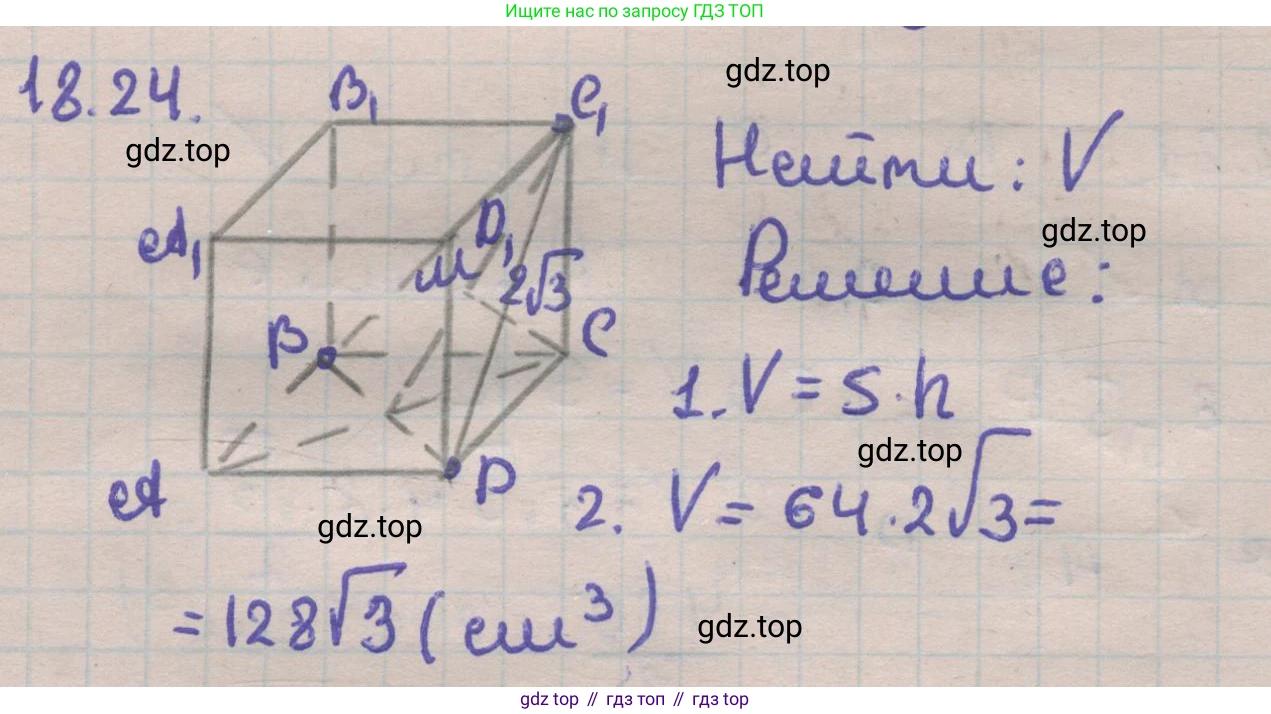 Ищите нас по запросу ГДЗ ТОП
18.24.
B₁
C₁
gdz.top
gdz.top
Найти: V
A₁
D₁
M
2√3
gdz.top
Решение:
B
C
1. V = S · h
gdz.top
A
D
2. V = 64 · 2√3 =
gdz.top
= 128√3 (см³)
gdz.top
gdz top // гдз топ // gdz top